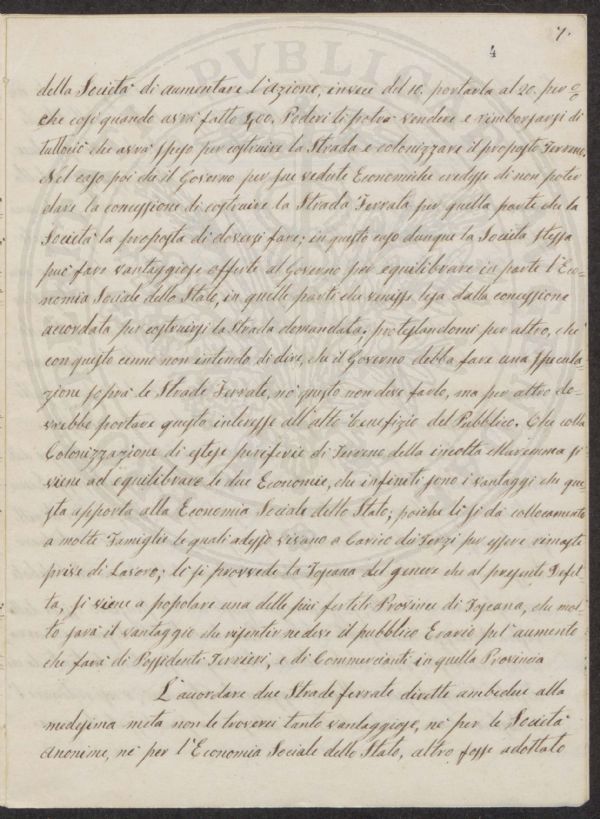 7.
4
della Società di aumentare l'azione, invece del 10. portarla al 20. per %
che così quando avrà fatto 400. Poderi li potrà vendere e rimborsarsi di
tuttociò che avrà speso per costruire la Strada e colonizzare il proposto Terreno.
Nel caso poi che il Governo per sue vedute Economiche credesse di non poter
dare la concessione di costruire la Strada Ferrata per quella parte che la
Società la proposta di doversi fare; in questo caso dunque la Società stessa
può fare vantaggiose offerte al Governo per equilibrare in parte l'Eco-
nomia Sociale dello Stato, in quelle parti che venisse lesa dalla concessione
accordata per costruirsi la Strada domandata, protestandomi per altro, che
con questo cenno non intendo di dire, che il Governo debba fare una specula-
zione sopra le Strade Ferrate, no questo non deve farlo, ma per altro do-
vrebbe portare questo interesse all'alto benefizio del Pubblico. Che colla
Colonizzazione di estese periferie di Terreno della incolta Maremma si
viene ad equilibrare le due Economie, che infiniti sono i vantaggi che que-
sta apporta alla Economia Sociale dello Stato; poiché li si dà collocamento
a molte Famiglie le quali adesso vivano a Carico dei Terzi per essere rimaste
prive di Lavoro; li si provvede la Toscana del genere che al presente Defet-
ta, si viene a popolare una delle più fertili Provincie di Toscana, che mol-
to sarà il vantaggio che risentir ne deve il pubblico Erario pel aumento
che farà di Possidenti Terrieri, e di Commercianti in quella Provincia
L'accordare due Strade ferrate dirette ambedue alla
medesima meta non le troverei tanto vantaggiose, nè per le Società
Anonime, nè per l'Economia Sociale dello Stato, altro fosse adottato